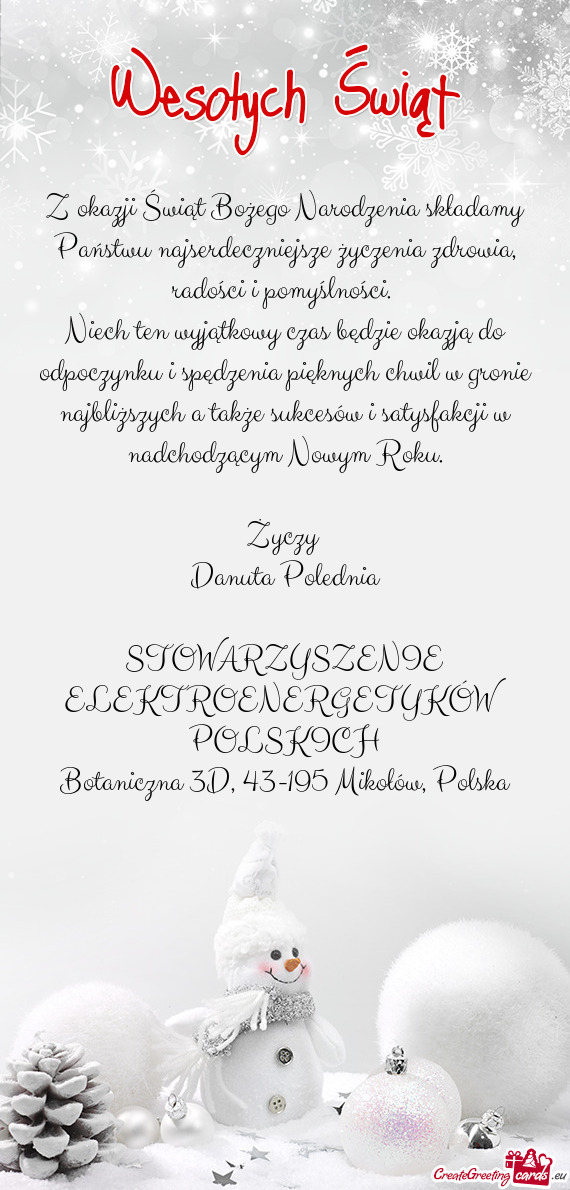 Wesołych Świąt
Z okazji Świąt Bożego Narodzenia składamy
Państwu najserdeczniejsze życzenia zdrowia,
radości i pomyślności.
Niech ten wyjątkowy czas będzie okazją do
odpoczynku i spędzenia pięknych chwil w gronie
najbliższych a także sukcesów i satysfakcji w
nadchodzącym Nowym Roku.
Życzy
Danuta Polednia
STOWARZYSZENIE
ELEKTROENERGETYKÓW
POLSKICH
Botaniczna 3D, 43-195 Mikołów, Polska
CreateGreeting cards .eu